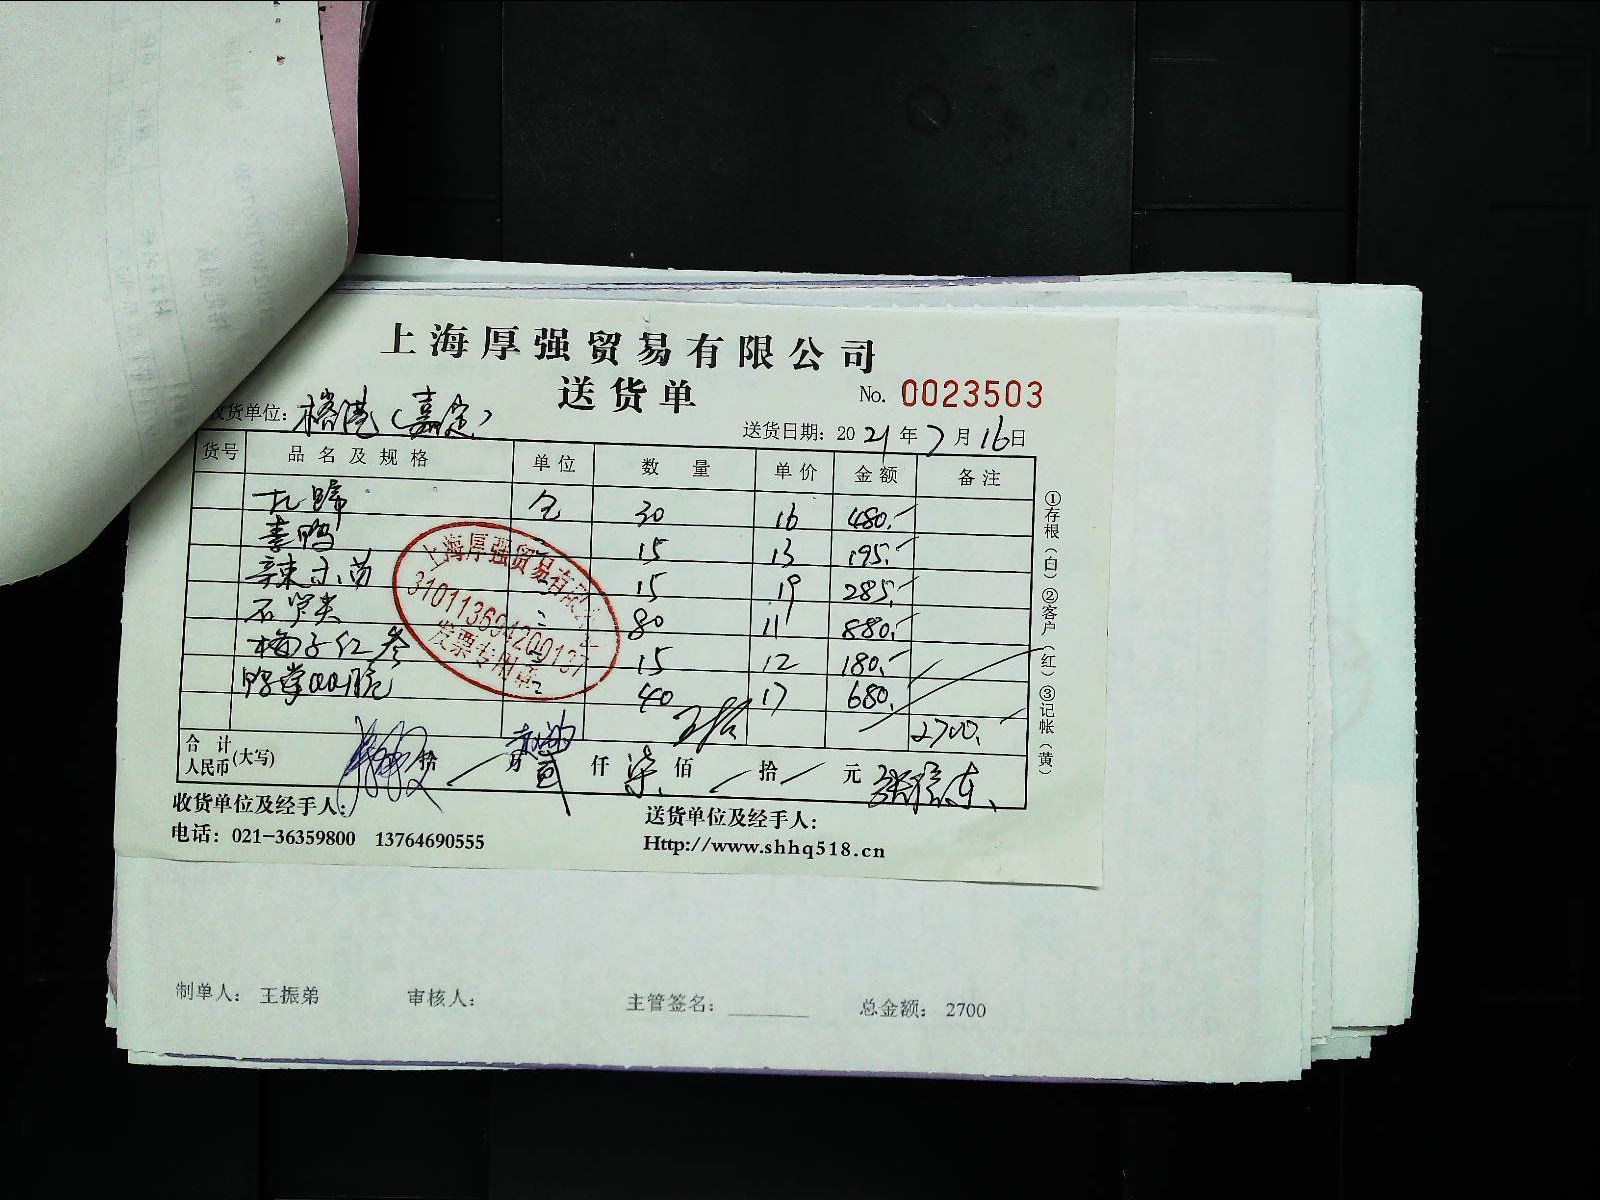 上海厚强贸易有限公司
送货单 No. 0023503
收货单位：榕港（嘉定） 送货日期：2021年7月16日
货号 品名及规格 单位 数量 单价 金额 备注
30 16 480.-
素鸭 15 13 195.-
辣 15 19 285.-
石笋尖 80 11 880.-
梅子红参 15 12 180.-
鸭掌QQ脆 40 17 680.-
2700.
合计人民币(大写) 拾 万 贰 仟 柒 佰 拾 元 张信东
收货单位及经手人： 送货单位及经手人：
电话：021-36359800 13764690555 Http://www.shhq518.cn
①存根（白）②客户（红）③记帐（黄）
上海厚强贸易有限
310113694200137
发票专用章
制单人： 王振弟 审核人： 主管签名： 总金额： 2700